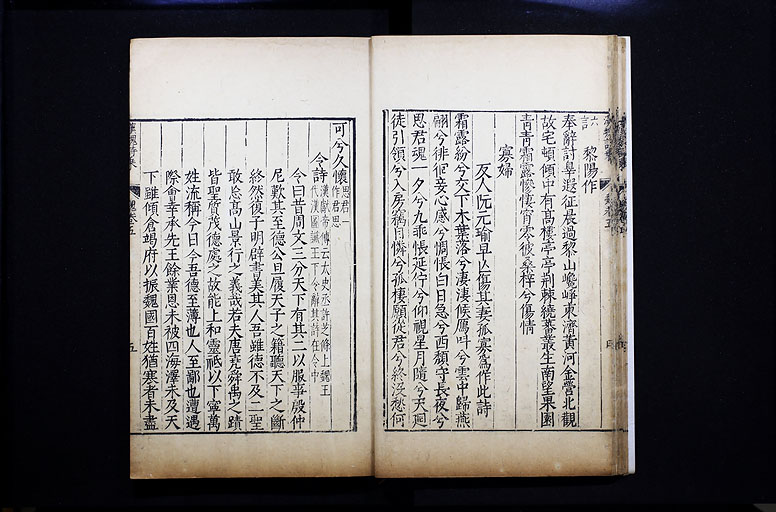 六言
黎陽作
奉辭討辠遐征晨過黎山巉崢東濟黃河金營北觀
故宅頓傾中有高樓亭亭荊棘繞蕃叢生南望果園
青青霜露慘悽宵零彼桑梓兮傷情
寡婦
友人阮元瑜早亾傷其妻孤寡爲作此詩
霜露紛兮交下木葉落兮淒淒候鴈呌兮雲中歸燕
翩兮徘徊妾心感兮惆悵白日急兮西頹守長夜兮
思君魂一夕兮九乖悵延佇兮仰視星月隨兮天迴
徒引領兮入房竊自憐兮孤棲願從君兮終沒愁何
可兮久懷思君作君思
令詩漢獻帝傳云太史丞許芝條上魏王代漢圖讖王下令辭其詩在令中
令曰昔周文三分天下有其二以服事殷仲
尼歎其至德公旦履天子之籍聽天下之斷
終然復子明辟書美其人吾雖德不及二聖
敢忘高山景行之義哉若夫唐堯舜禹之蹟
皆聖質茂德處之故能上和靈祇以下寧萬
姓流稱今日今吾德至薄也人至鄙也遭遇
際會幸承先王餘業恩未被四海澤未及天
下雖傾倉竭府以振魏國百姓猶寒者未盡
魏卷五
五